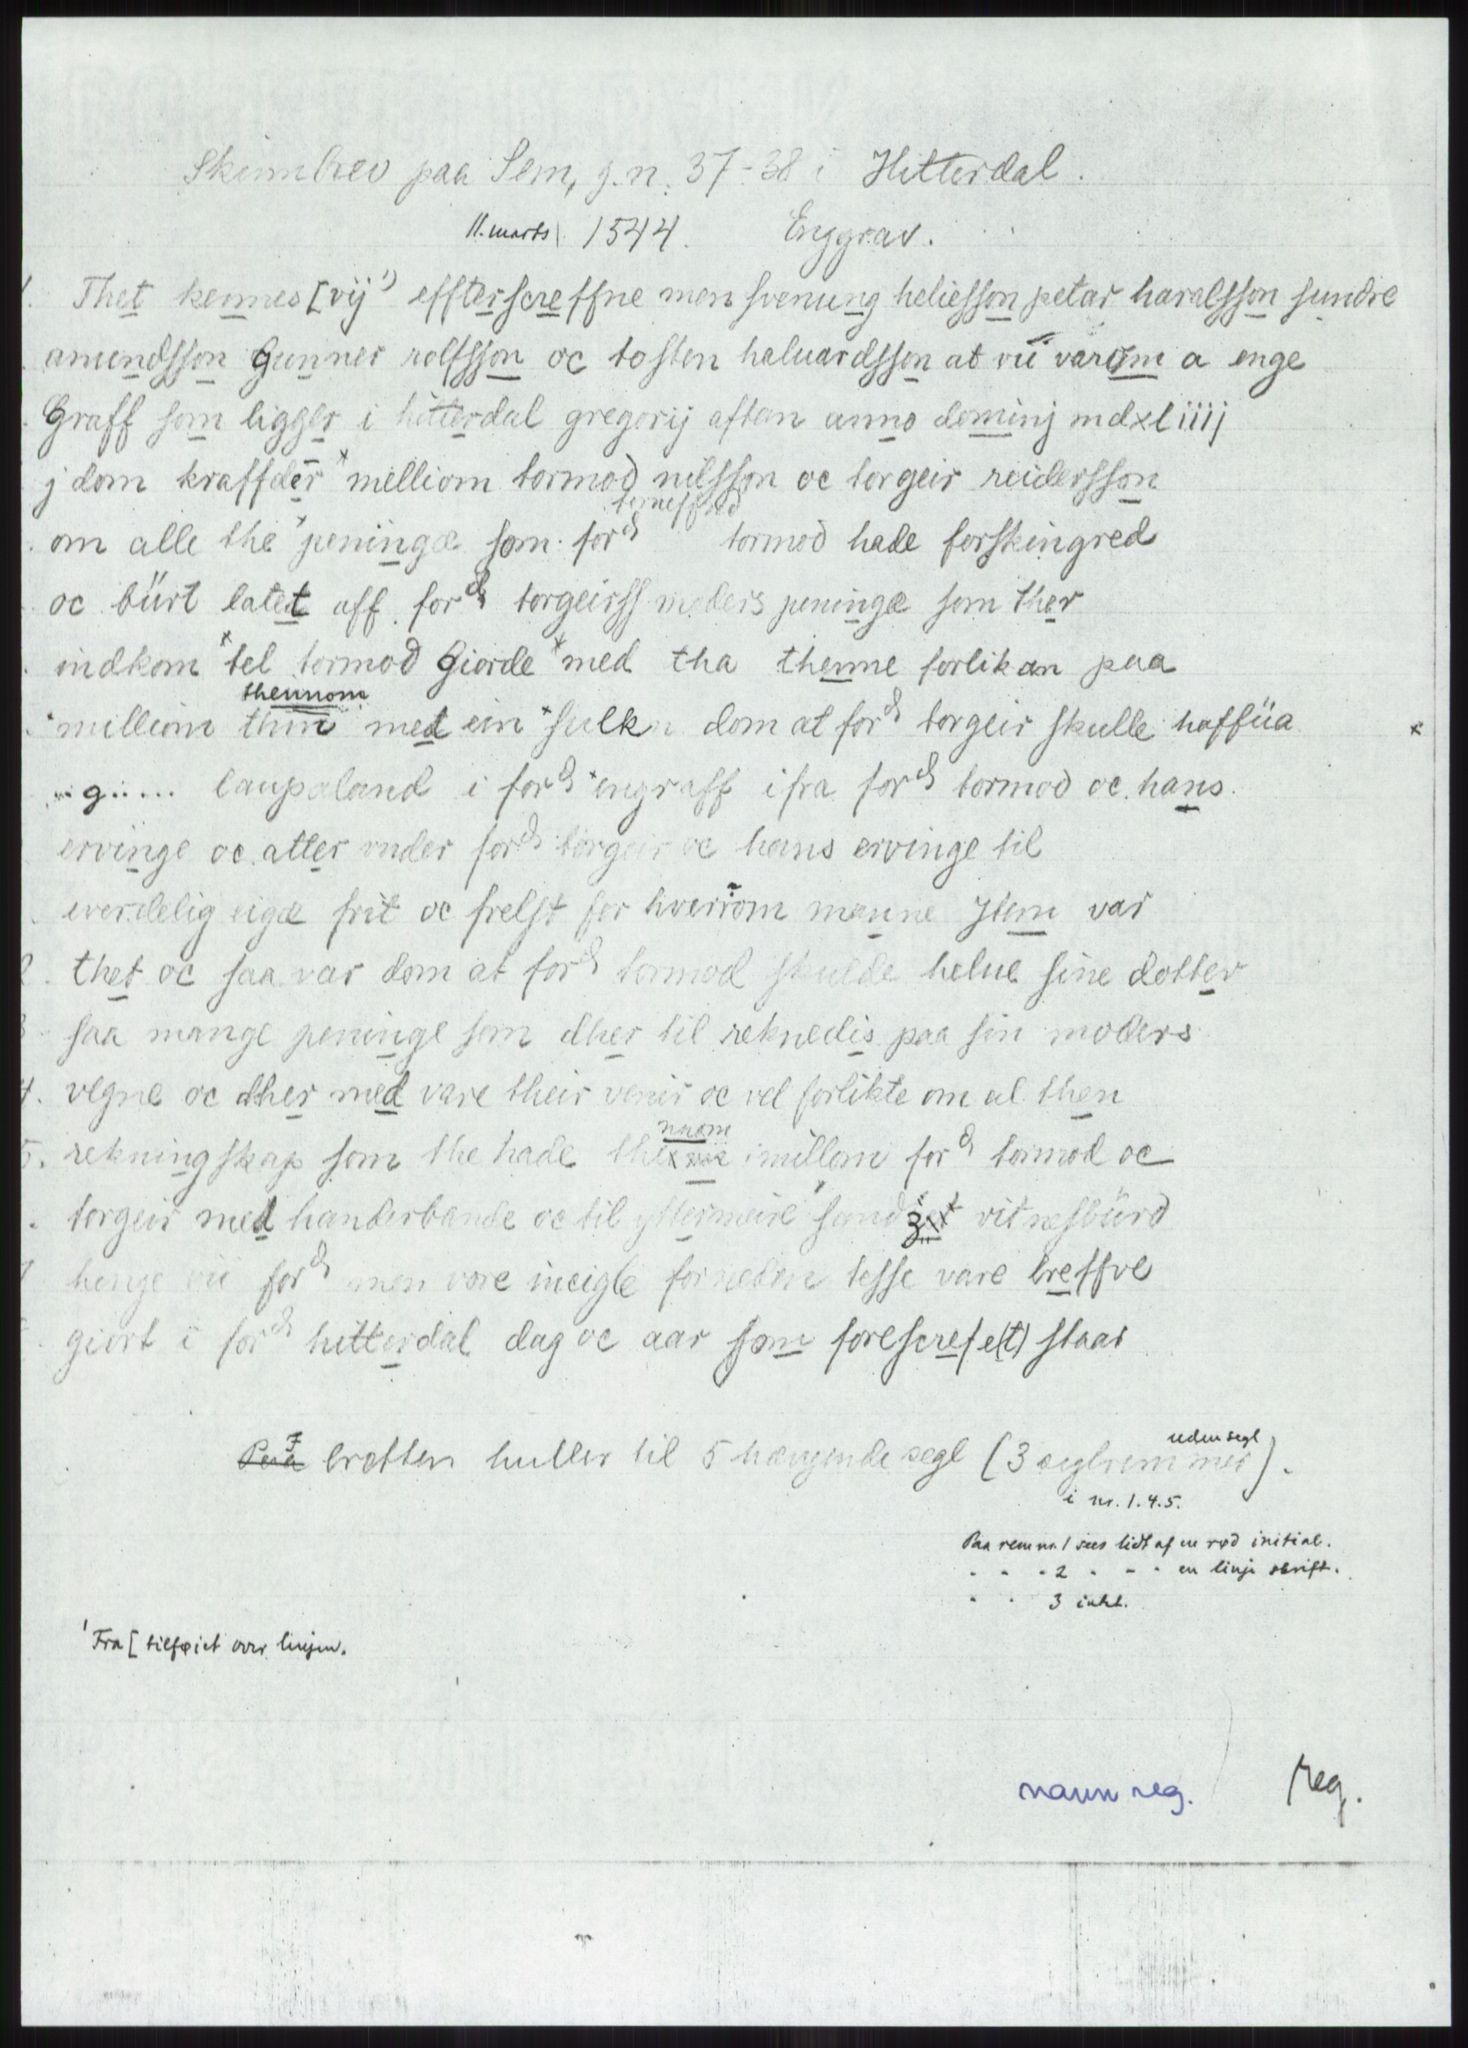 Skinnbrev paa Sem, g.n. 37-38 i Hitterdal.
11. marts 1544. Enggrav.
Thet kennes [vij 1) effterscreffne men svenung heliesson petar haralsson sundre
amundsson Gunner rolfsson oc tosten haluardsson at vii varom a enge
Graff som ligger i hitterdal gregorij aftan anno dominj mdxliiij
j dom kraffder * melliom tormod nilsson oc torgeir reidersson
om alle the * peningæ som ford tormod hade forskingred
oc burt latet aff ford torgeirss moders peningæ som ther
indkom * tel tormod Giorde * med tha thenne forlikan paa
thennom
* melliom med ein * sulk dom at ford torgeir skulle haffua *
..g..... laupaland i ford * engraff ifra ford tormod oc hans
ervinge oc atter vnder ford torgeir oc hans ervinge til
everdelig eigæ frit oc frelst for hverrom manne Jtem var
2. thet oc saa var dom at ford tormod skulde helue sine dotter
3 saa mange peninge som dher til reknedis paa sin moders
4. vegne oc dher med vare their venir oc vel forlikte om al then
nnom
5. rekningskap som the hade the imillom ford tormod oc
torgeir med handerbande oc til yttermeire * sand vitnesburd
henge vii ford men vore incigle forneden tesse vare breffve
giort i ford hitterdal dag oc aar som forescrefe(t) staar
I brætten huller til 5 hængende segl (3 seglremmer uden segl).
i nr. 1. 4. 5.
Paa rem nr. 1 sees lidt af en rød initial.
" " " 2 " " " en linje skrift.
" " 3 intet.
1 Fra [ tilføiet over linjen.
navnreg. reg.